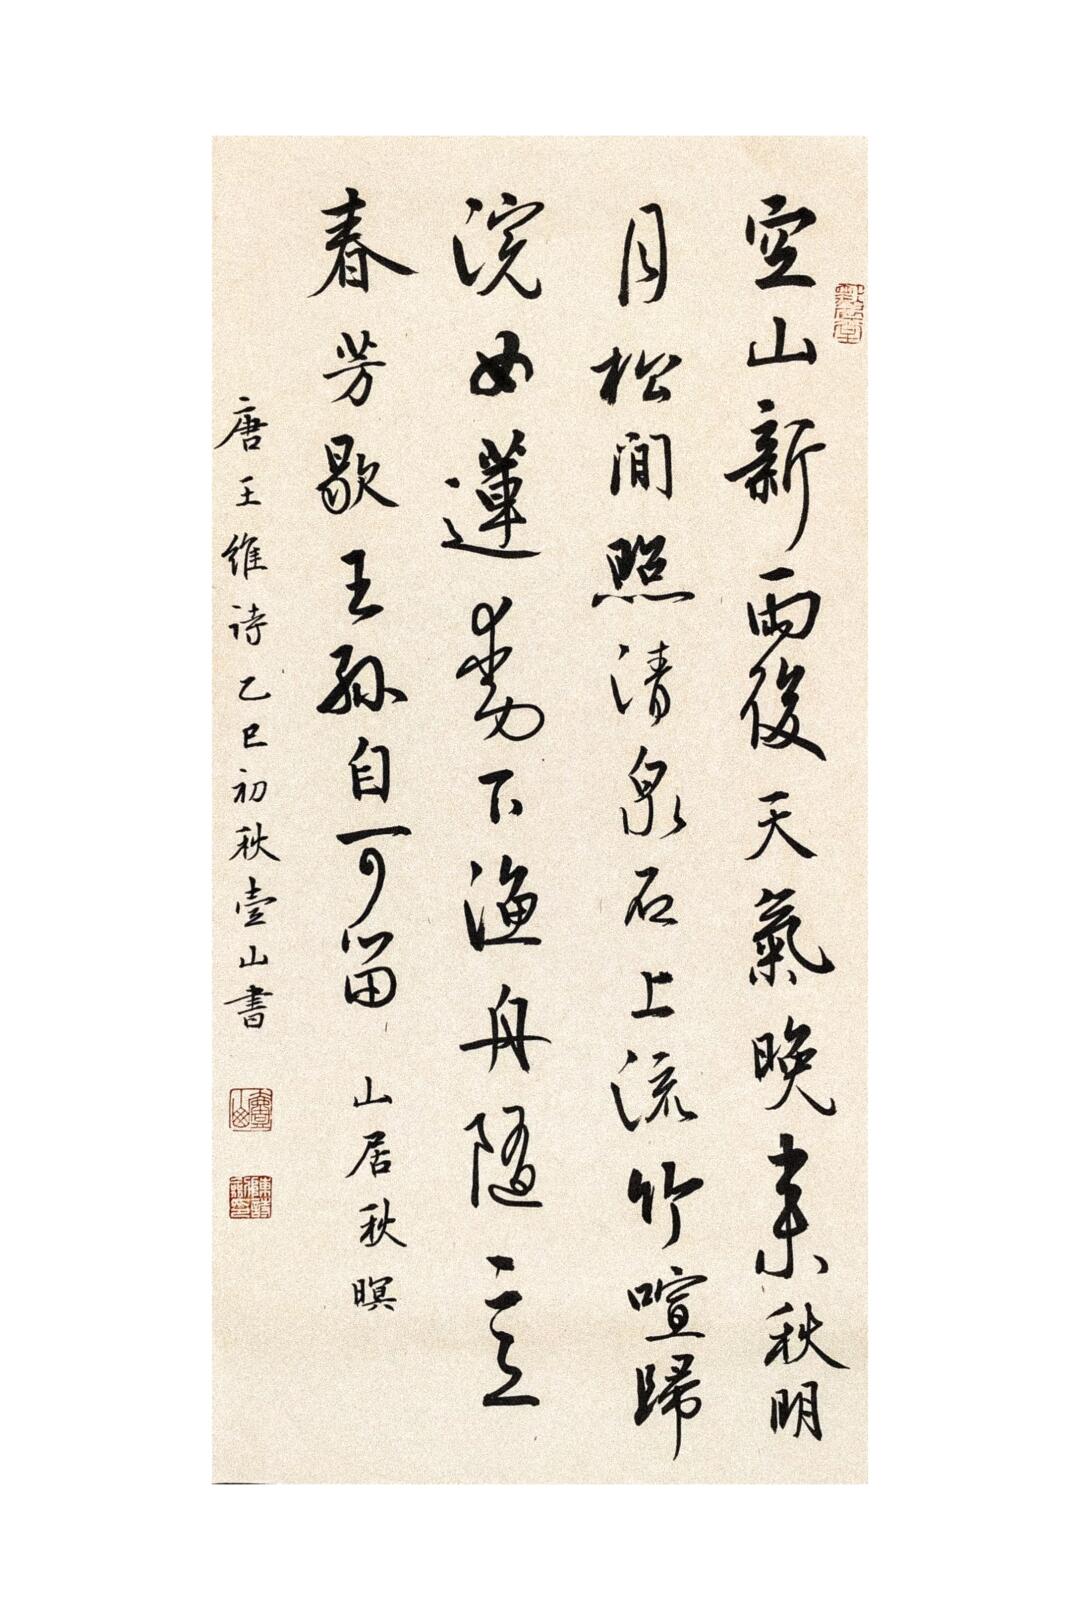 空山新雨後天氣晚来秋明
月松間照清泉石上流竹喧歸
浣女蓮動下漁舟隨意
春芳歇王孫自可留 山居秋暝
唐王維詩乙巳初秋壹山書
壹山